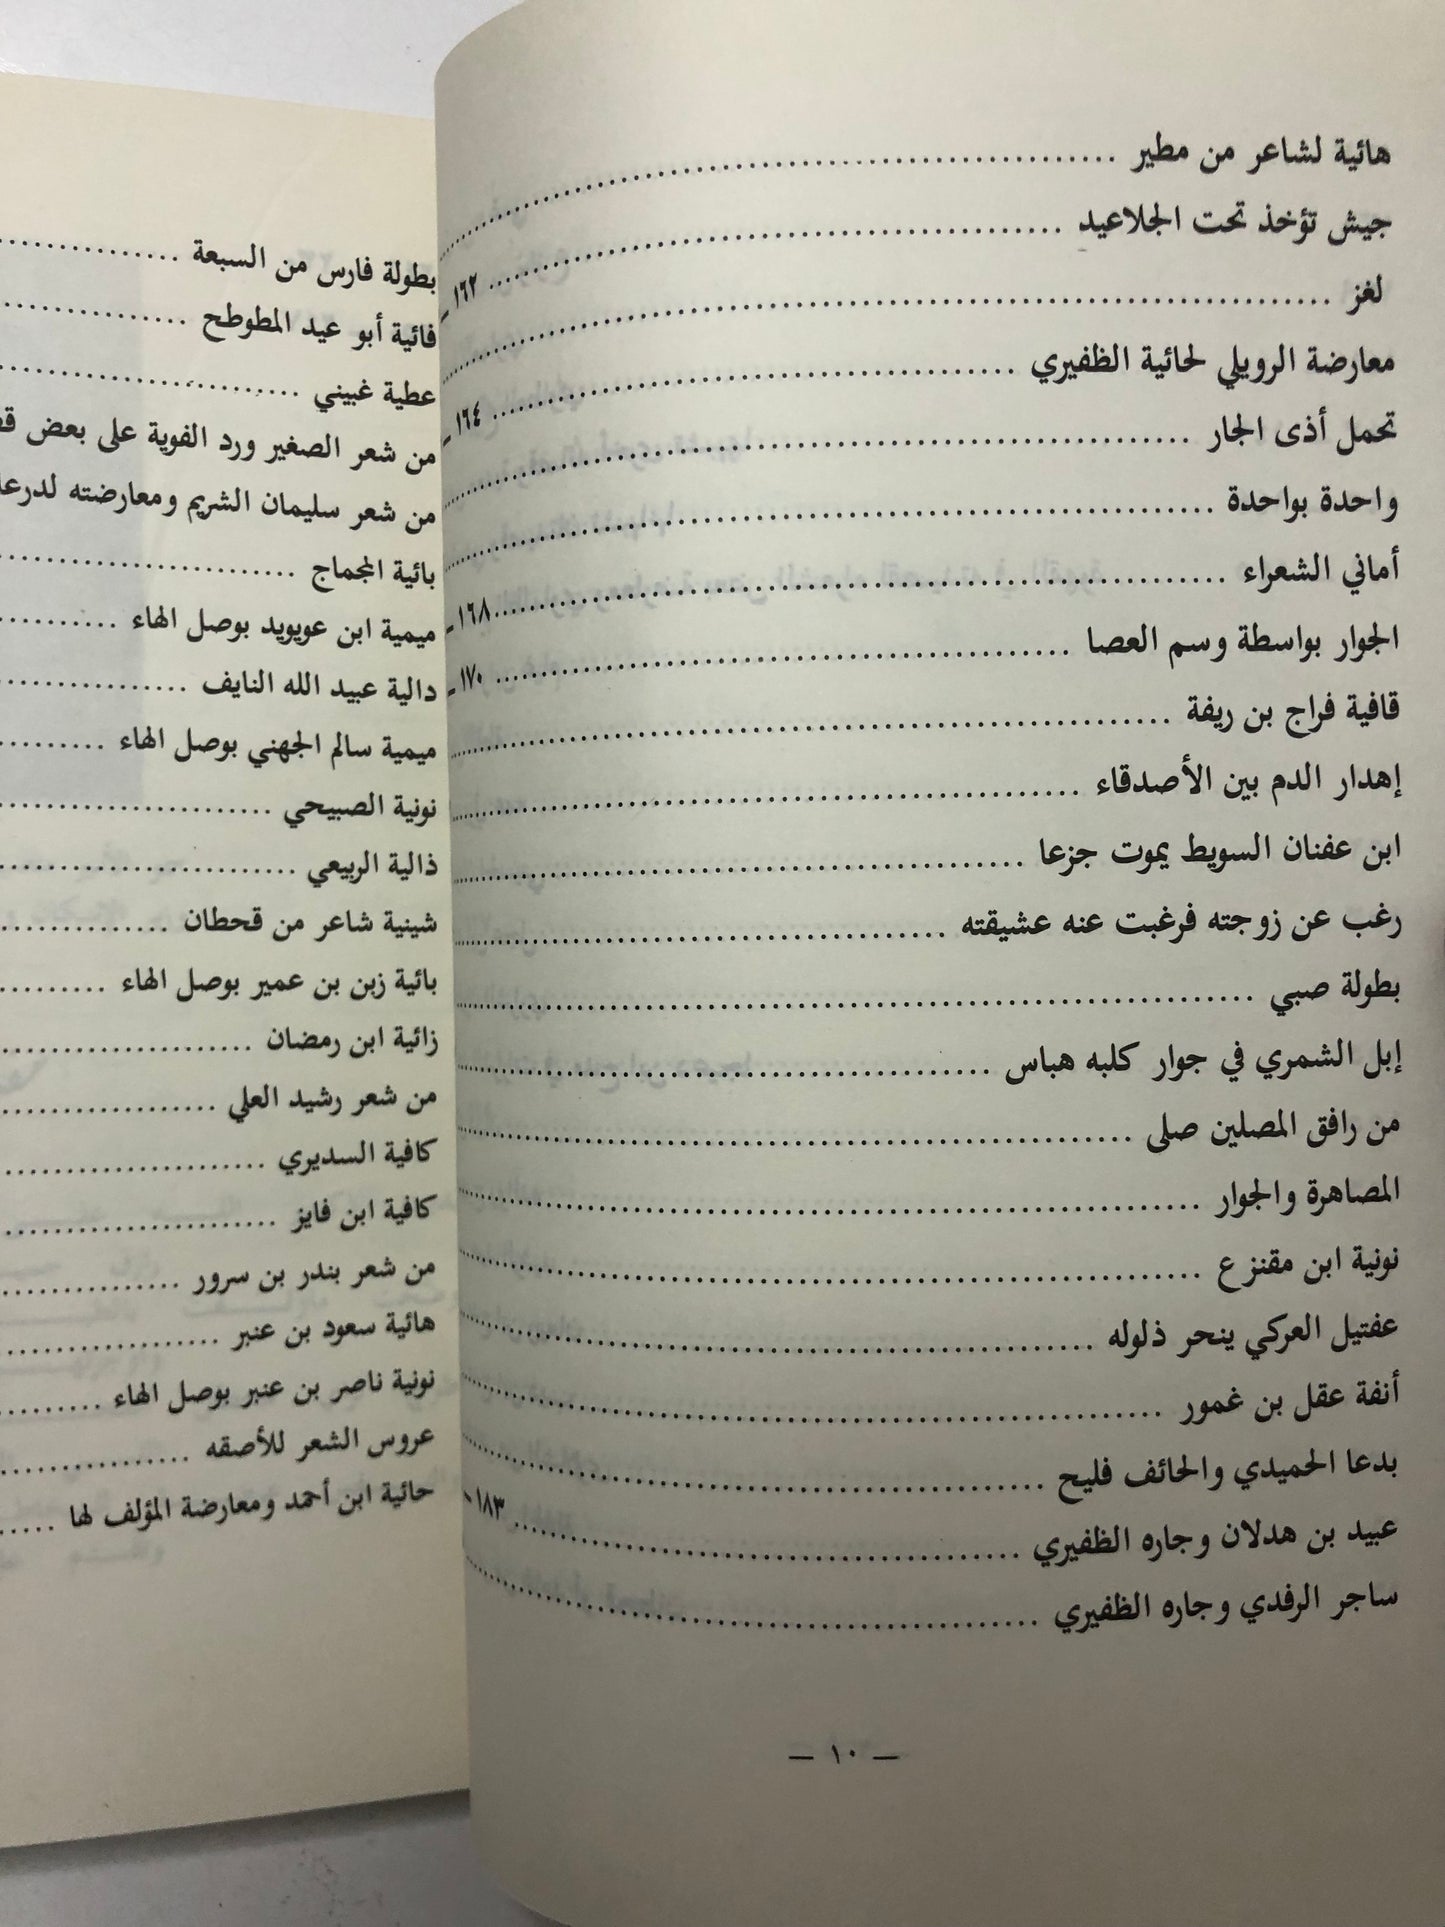 هائية لشاعر من مطير ........................
جيش تؤخذ تحت الجلاعيد ........................ ١٦٢ -
لغز ........................
معارضة الرويلي لحائية الظفيري ........................ ١٦٤ -
تحمل أذى الجار ........................
واحدة بواحدة ........................
أماني الشعراء ........................ ١٦٨ -
الجوار بواسطة وسم العصا ........................ ١٧٠ -
قافية فراج بن ريفة ........................
إهدار الدم بين الأصدقاء ........................
ابن عفنان السويط يموت جزعا ........................
رغب عن زوجته فرغبت عنه عشيقته ........................
بطولة صبي ........................
إبل الشمري في جوار كلبه هباس ........................
من رافق المصلين صلى ........................
المصاهرة والجوار ........................
نونية ابن مقنزع ........................
عفتيل العركي ينحر ذلوله ........................
أنفة عقل بن غمور ........................
بدعا الحميدي والحائف فليح ........................
عبيد بن هدلان وجاره الظفيري ........................ ١٨٣ -
ساجر الرفدي وجاره الظفيري ........................
— ١٠ —
بطولة فارس من السبعة ............
فائية أبو عيد المطوطح ............
عطية غبيني ............
من شعر الصغير ورد الفوية على بعض
من شعر سليمان الشريم ومعارضته
بائية المجماج ............
ميمية ابن عويويد بوصل الهاء ............
دالية عبيد الله النايف ............
ميمية سالم الجهني بوصل الهاء ............
نونية الصبيحي ............
ذالية الربيعي ............
شينية شاعر من قحطان ............
بائية زبن بن عمير بوصل الهاء ............
زائية ابن رمضان ............
من شعر رشيد العلي ............
كافية السديري ............
كافية ابن فايز ............
من شعر بندر بن سرور ............
هائية سعود بن عنبر ............
نونية ناصر بن عنبر بوصل الهاء ............
عروس الشعر للأصقه ............
حائية ابن أحمد ومعارضة المؤلف لها ......